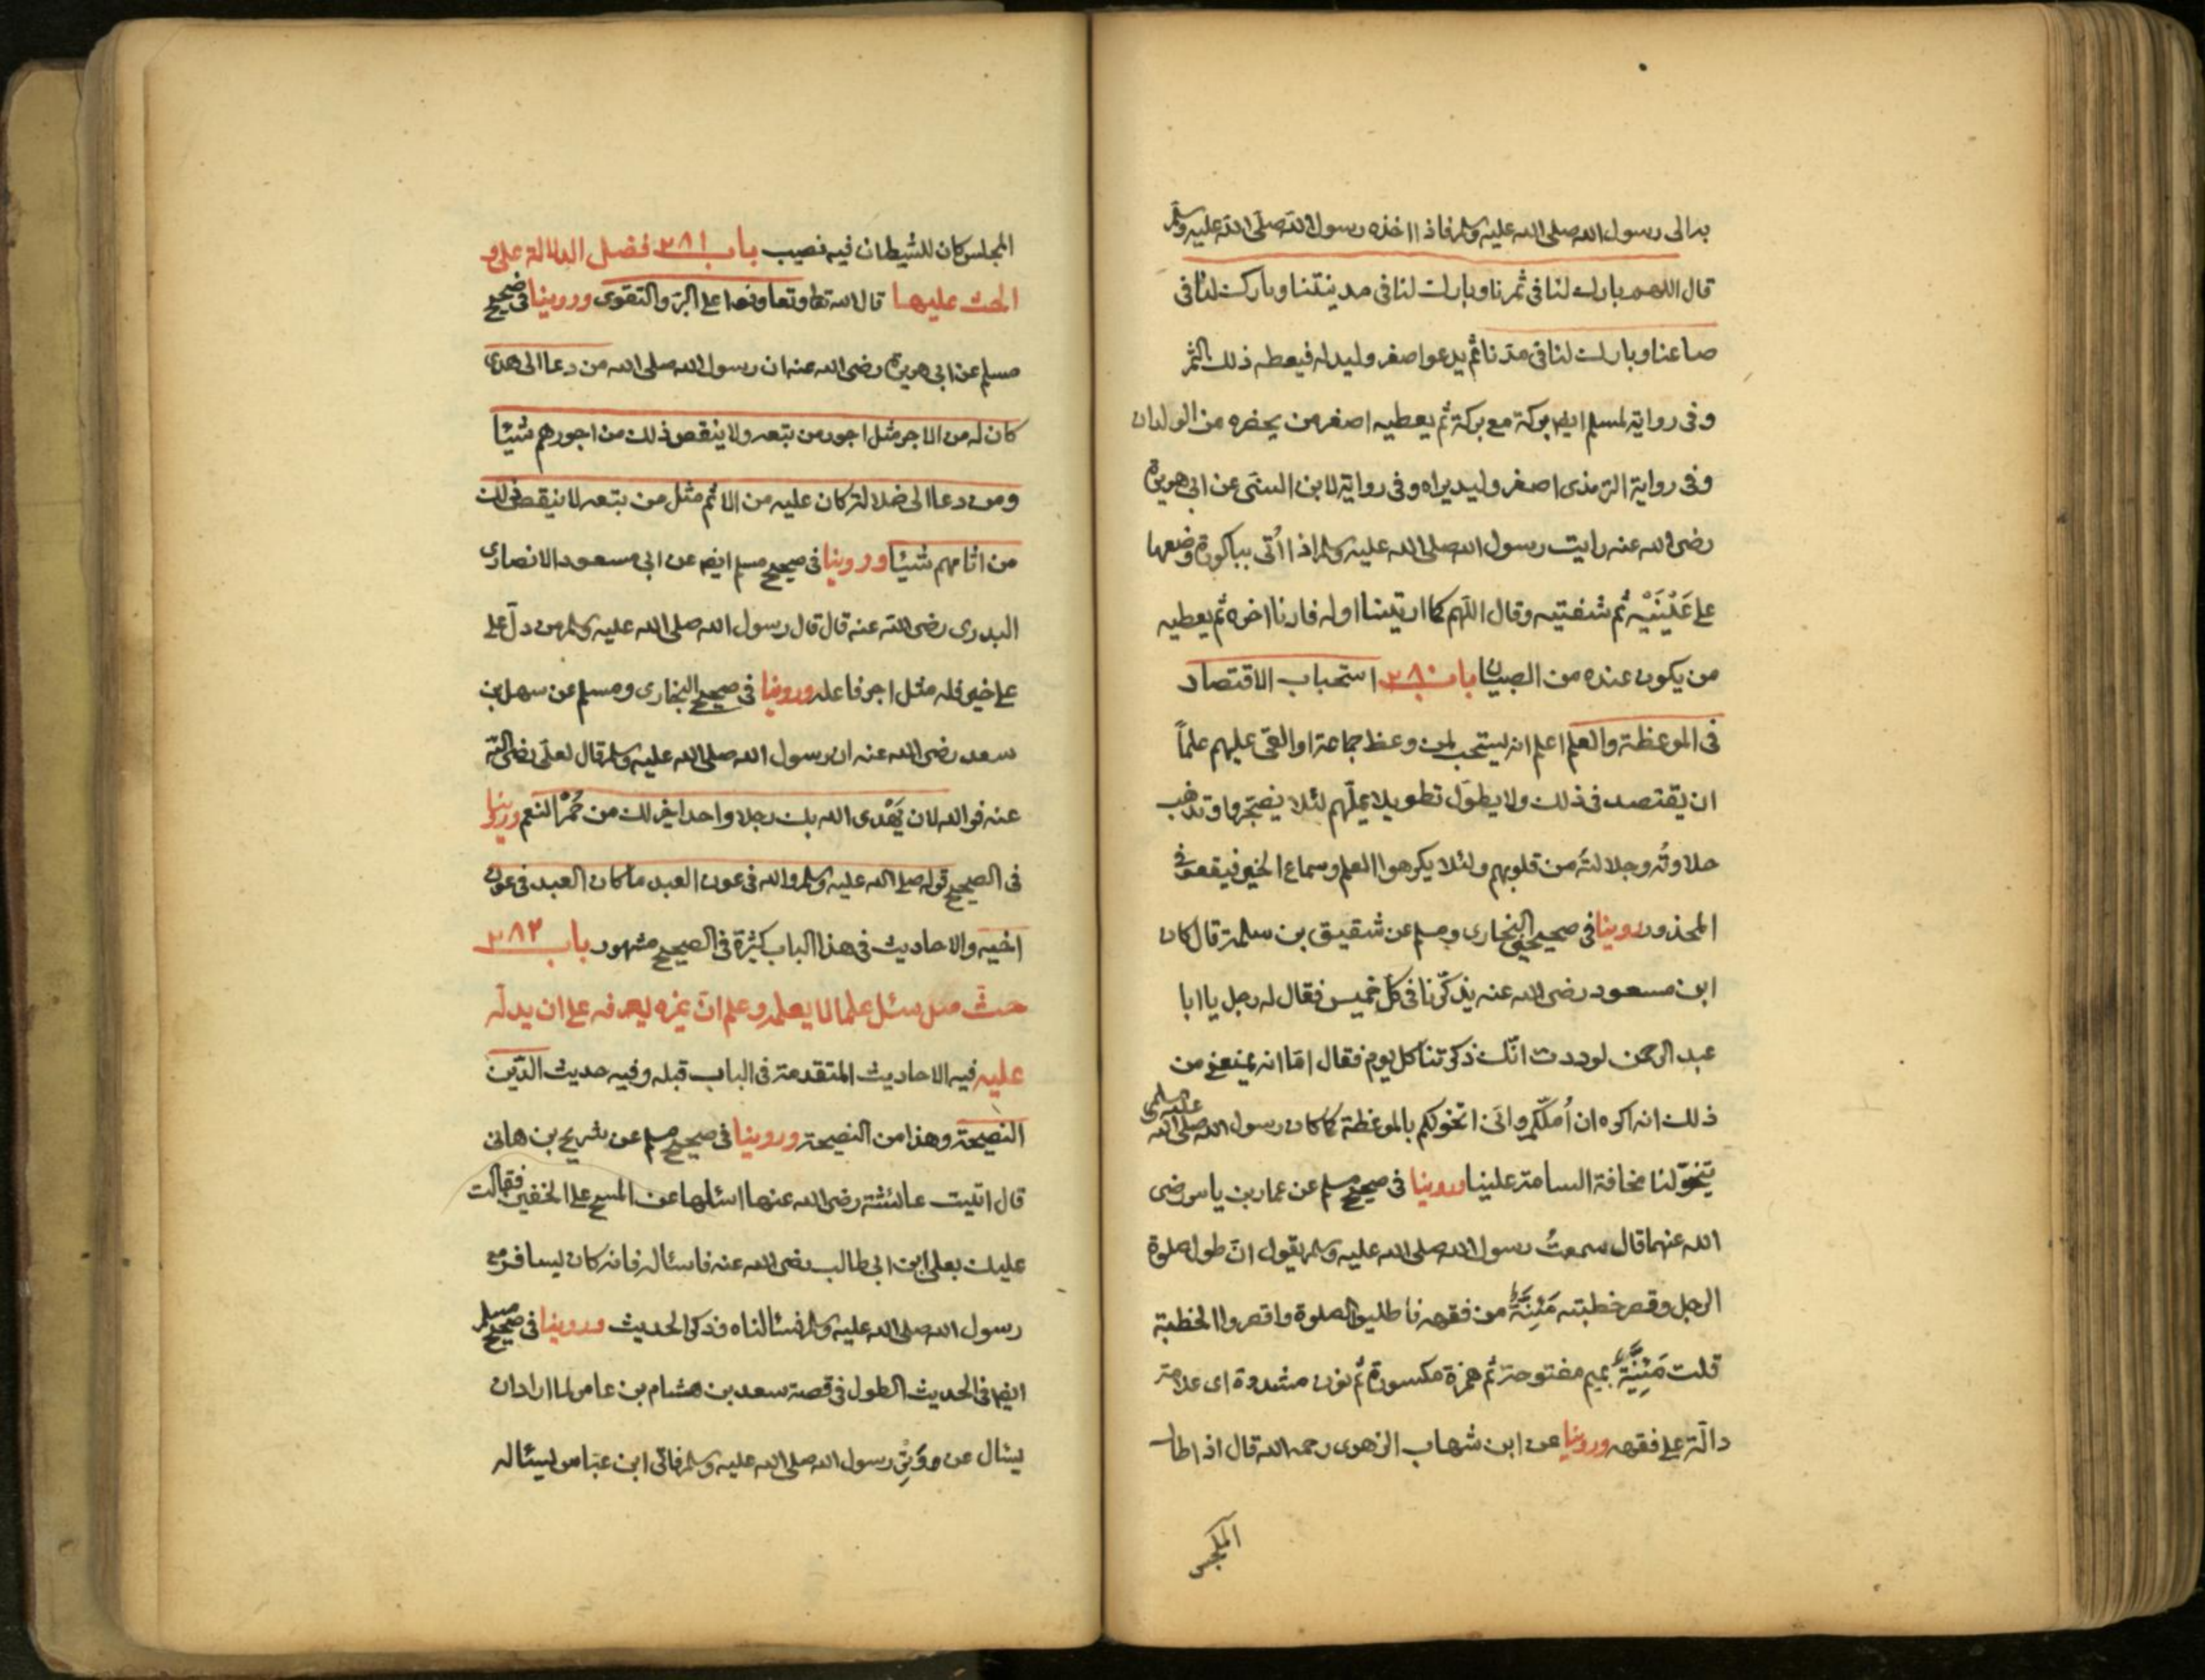 به الى رسول الله صلى الله عليه وسلم فاذا اخذه رسول الله صلى الله عليه وسلم
قال اللهم بارك لنا فى ثمرنا وبارك لنا فى مدينتنا وبارك لنا فى
صاعنا وبارك لنا فى مدّنا ثم يدعو اصغر وليد له فيعطه ذلك الثمر
وفى رواية لمسلم ايض بركة مع بركة ثم يعطيه اصغر من يحضره من الولدان
وفى رواية الترمذى اصغر وليد يراه وفى رواية لابن السنى عن ابى هريرة
رضى الله عنه رايت رسول الله صلى الله عليه وسلم اذا اُتى بباكورة وضعها
على عَيْنَيْه ثم شفتيه وقال اللّهم كما اريتنا اوله فارنا اخره ثم يعطيه
من يكون عنده من الصبيان باب ٢٨٠ استحباب الاقتصاد
فى الموعظة والعلم اعلم انه يستحب لمن وعظ جماعة او القى عليهم علماً
ان يقتصد فى ذلك ولا يطوّل تطويلا يملّهم لئلا يضجروا وتذهب
حلاوتُه وجلالتُه من قلوبهم ولئلا يكرهوا العلم وسماع الخير فيقعوا فى
المحذور روينا فى صحيحى البخارى ومسلم عن شقيق بن سلمة قال كان
ابن مسعود رضى الله عنه يذكّرنا فى كل خميس فقال له رجل يا ابا
عبد الرحمن لوددت انّك ذكرتنا كل يوم فقال امّا انه يمنعنى من
ذلك انه اكره ان اُملّكم وانّى اتخولكم بالموعظة كما كان رسول الله صلى الله عليه وسلم
يتخوّلنا مخافة السامة علينا وروينا فى صحيح مسلم عن عمار بن ياسر رضى
الله عنهما قال سمعتُ رسول الله صلى الله عليه وسلم يقول انّ طول صلوة
الرجل وقصر خطبته مَئِنَّةٌ من فقهه فاطليوا الصلوة واقصروا الخطبة
قلت مَئِنَّةٌ بميم مفتوحة ثم همزة مكسورة ثم نون مشددة اى علامة
دالّة على فقهه وروينا عن ابن شهاب الزهرى رحمه الله قال اذا طال
المجلس
المجلس كان للشيطان فيه نصيب باب ٢٨١ فضل الدلالة على و
الحث عليها قال الله تعا وتعاونوا على البرّ والتقوى وروينا فى صحيح
مسلم عن ابى هريرة رضى الله عنه ان رسول الله صلى الله من دعا الى هدى
كان له من الاجر مثل اجور من تبعه ولا ينقص ذلك من اجورهم شيئا
ومن دعا الى ضلالة كان عليه من الاثم مثل من تبعه لا ينقص ذلك
من اثامهم شيئا وروينا فى صحيح مسلم ايض عن ابى مسعود الانصارى
البدرى رضى الله عنه قال قال رسول الله صلى الله عليه وسلم من دلّ على
على خير فله مثل اجر فاعله وروينا فى صحيح البخارى ومسلم عن سهل بن
سعد رضى الله عنه ان رسول الله صلى الله عليه وسلم قال لعلّى رضى الله
عنه فو الله لان يَهْدى الله بك رجلا واحدا خير لك من حُمْر النعم وروينا
فى الصحيح قوله صلى الله عليه وسلم والله فى عون العبد ما كان العبد فى عون
اخيه والاحاديث فى هذا الباب كثيرة فى الصحيح مشهور باب ٢٨٢
حثّ من سئل علما لا يعلمه وعلم انّ غيره يعرفه على ان يدلّه
عليه فيه الاحاديث المتقدمة فى الباب قبله وفيه حديث الدّين
النصيحة وهذا من النصيحة وروينا فى صحيح مسلم عن شريح بن هانى
قال اتيت عائشة رضى الله عنها اسئلها عن المسح على الخفين فقالت
عليك بعلى ابن ابى طالب رضى الله عنه فاسئاله فانه كان يسافر مع
رسول الله صلى الله عليه وسلم فسئالناه وذكر الحديث وروينا فى صحيح مسلم
ايض فى الحديث الطول فى قصة سعد بن هشام بن عامر لما اراد ان
يسئال عن وَِتْرِ رسول الله صلى الله عليه وسلم فاتى ابن عبّاس ليسئاله